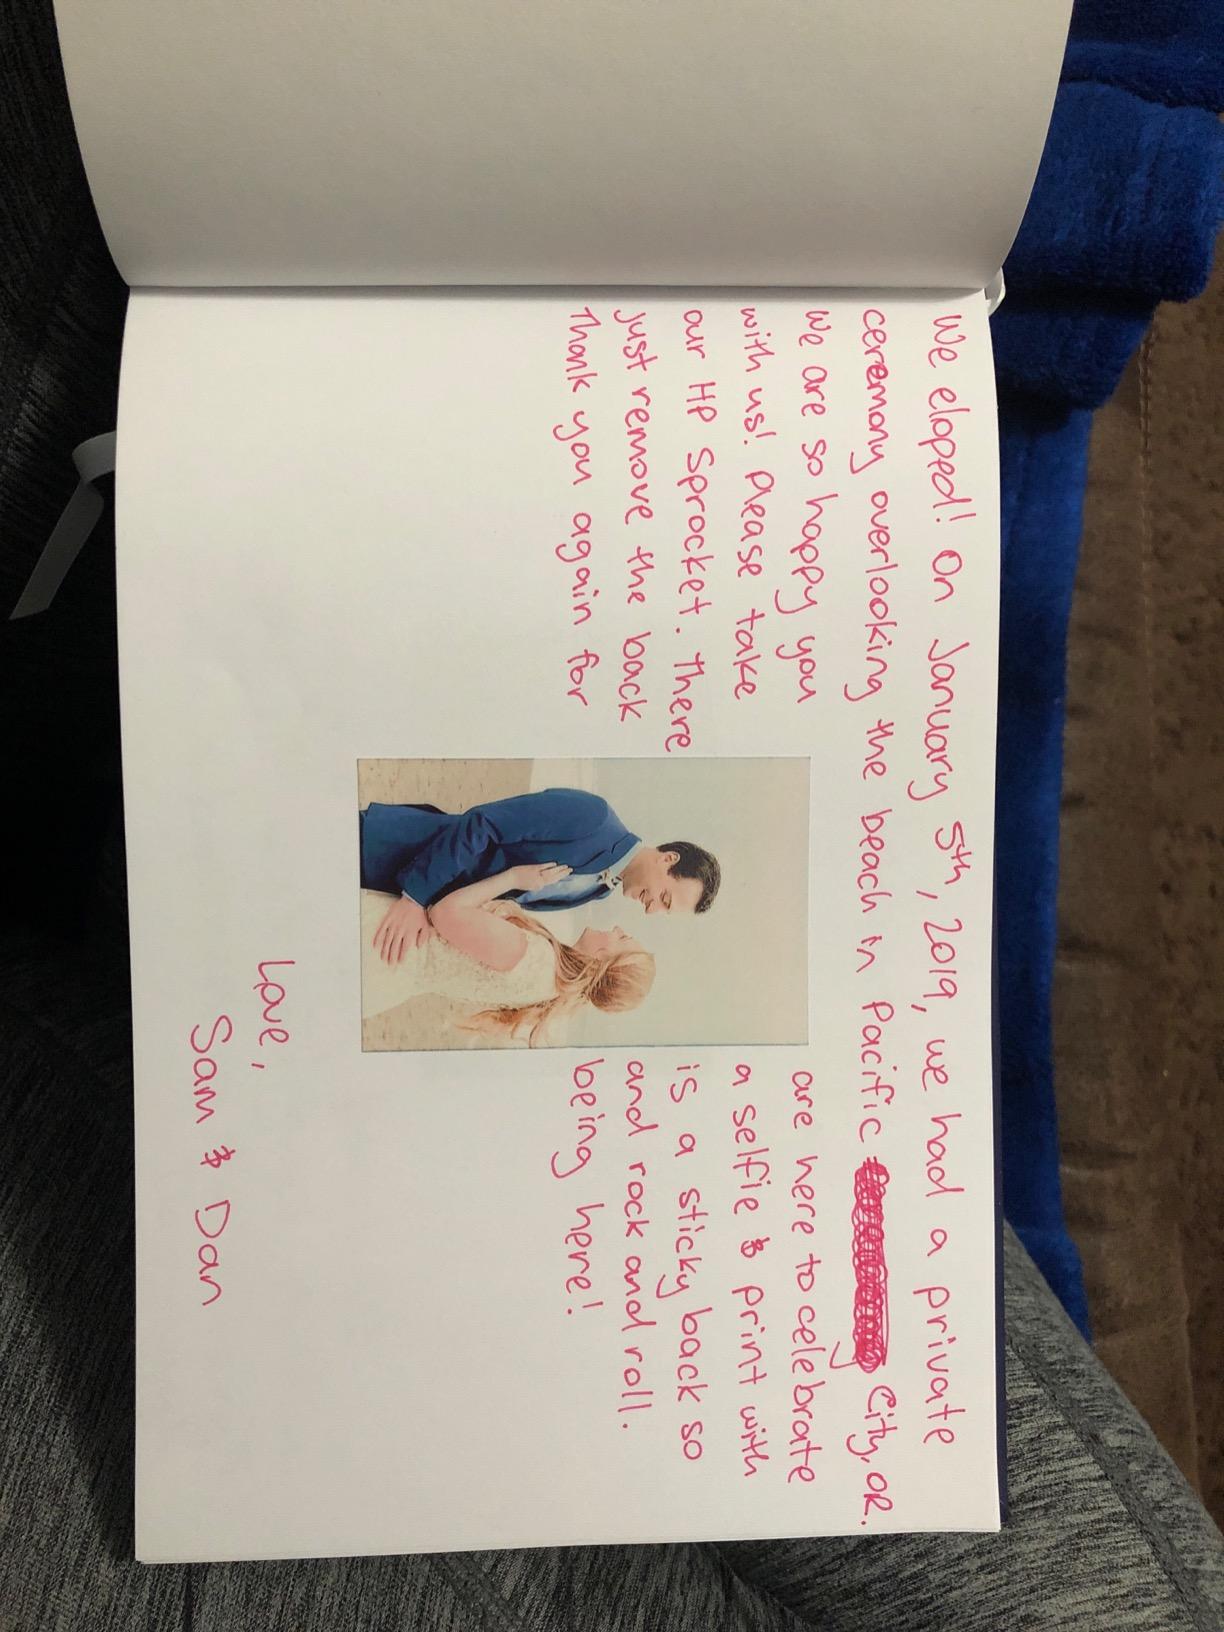 We eloped! On January 5th, 2019, we had a private
ceremony overlooking the beach in Pacific City, OR.
We are so happy you are here to celebrate
with us! Please take a selfie & print with
our HP Sprocket. There is a sticky back so
just remove the back and rock and roll.
Thank you again for being here!
Love,
Sam & Dan